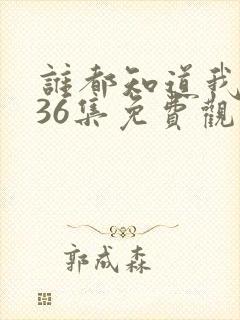 誰都知道我
36集免費觀
郭成森